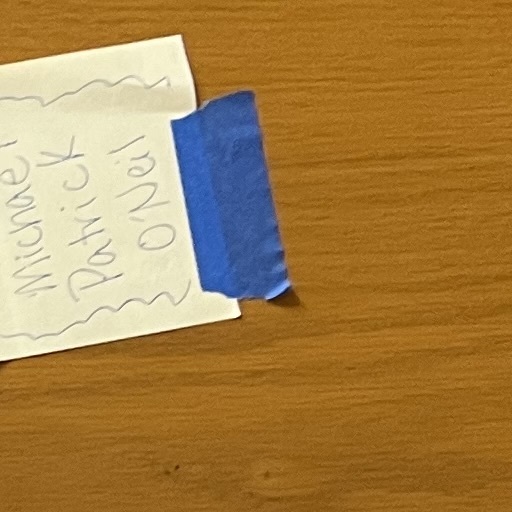 Michael
Patrick
O'Neil